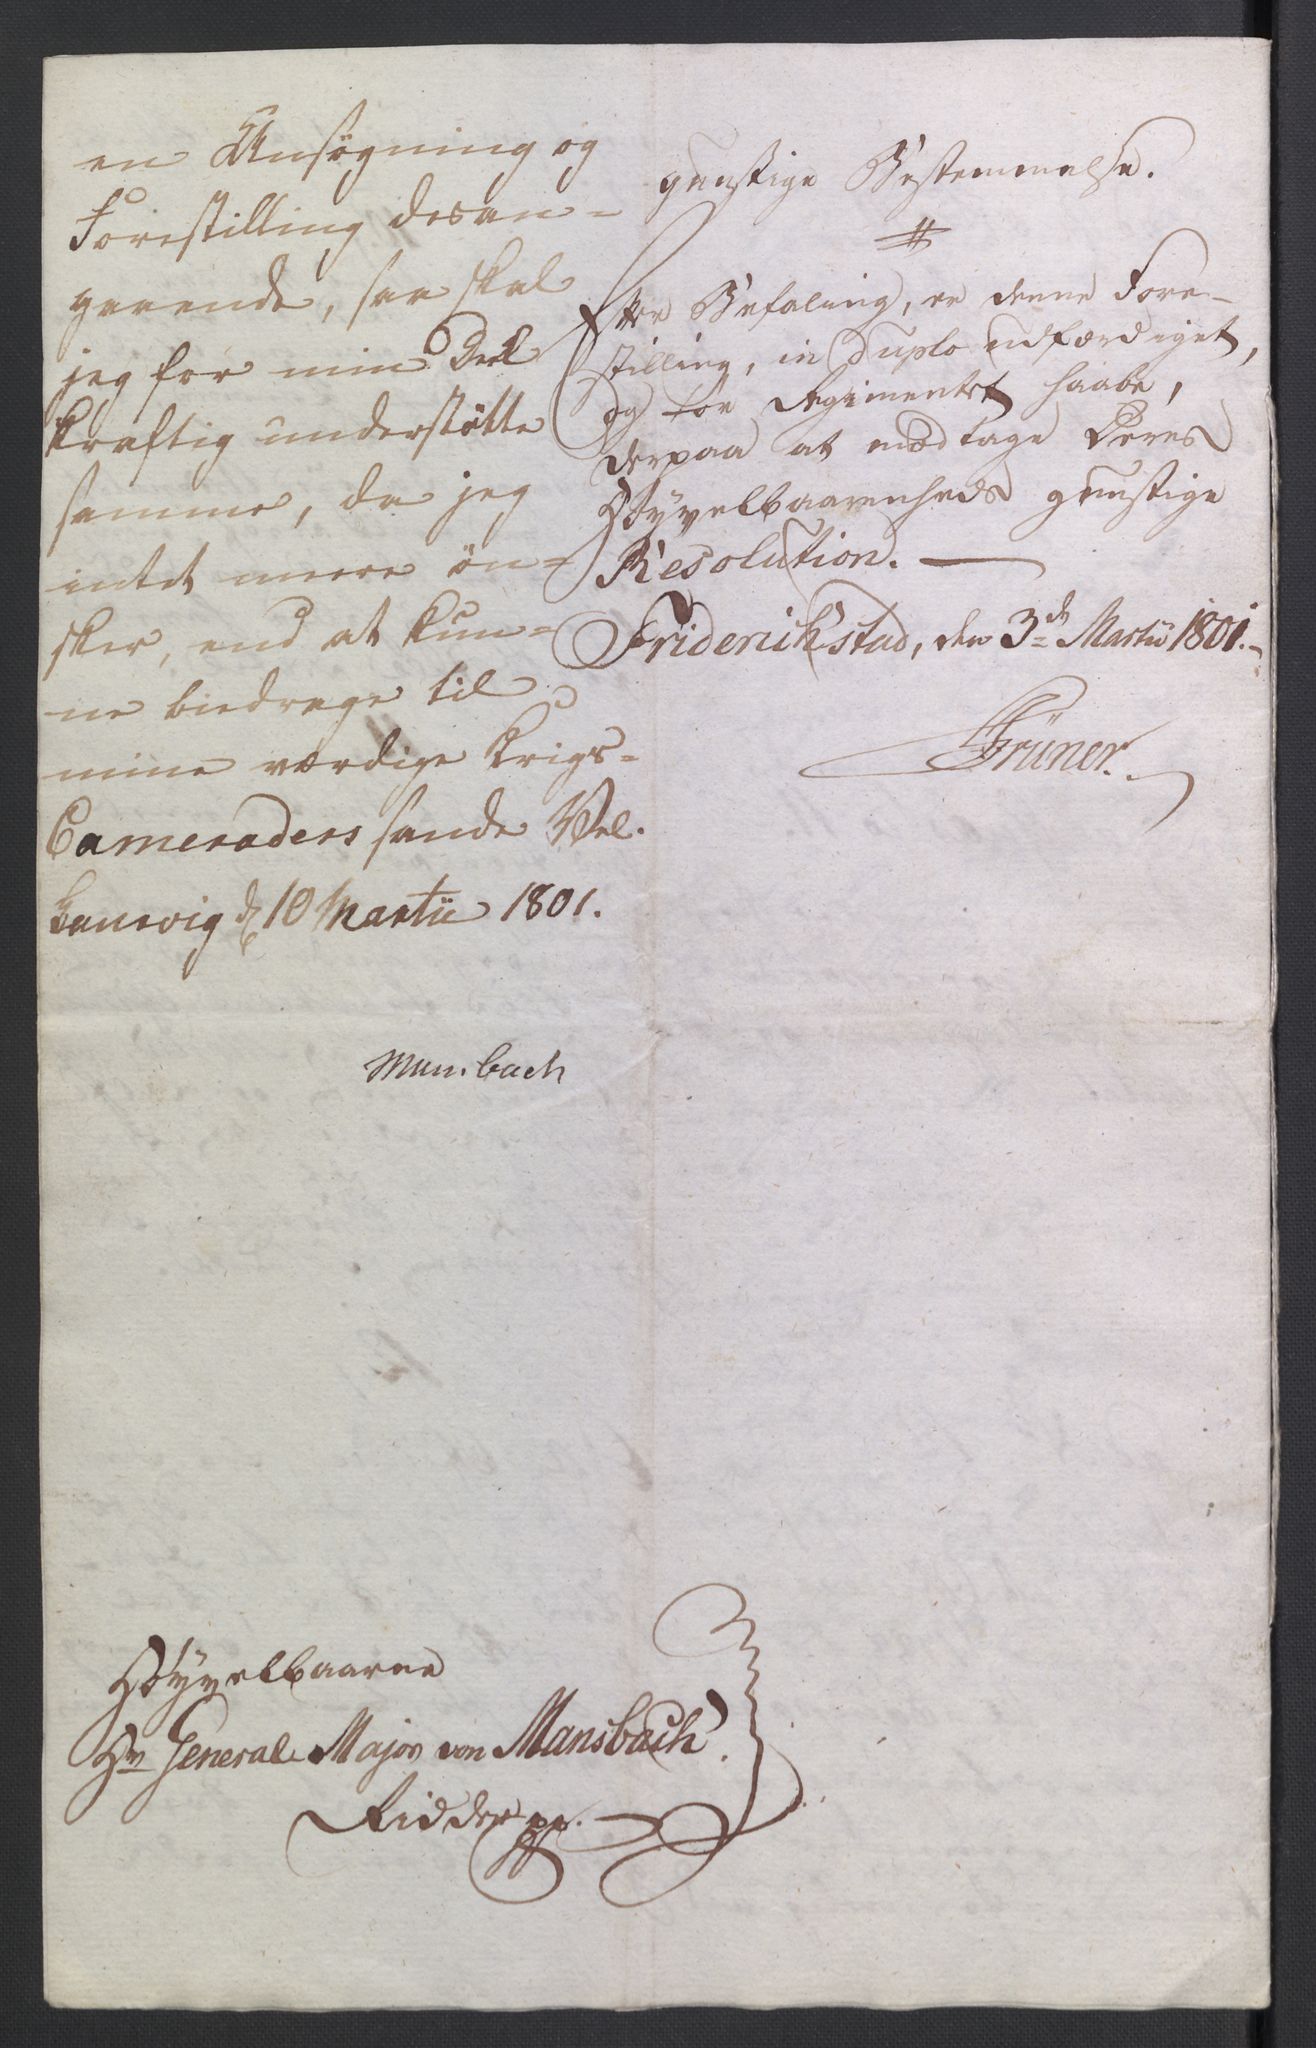 en Ansøgning og
Forestilling desan-
gaaende, saa skal
jeg for min Deel
kraftig understötte
samme, da jeg
intet meere ön-
sker, end at kun-
ne biedrage til
mine værdige Krigs-
Cameraders sande Vel.
d 10 Martii 1801.
Mansbach
gunstige Bestemmelse.
Efter Befaling, er denne Fore-
stilling, in Duplo udfærdiget,
og tør Regimentet haabe,
derpaa at modtage Deres
Høyvelbaarenheds gunstige
Resolution. —
Friderichstad, den 3de Martii 1801.
Grüner.
Høyvelbaarne
Hr General Major von Mansbach
Ridder pp.